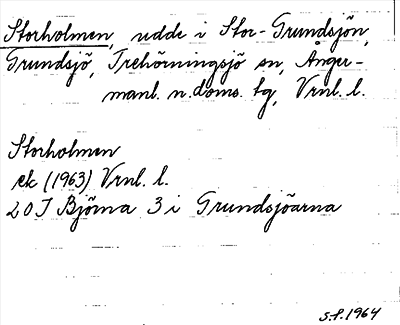 Storholmen, udde i Stor-Grundsjön,
Grundsjö, Trehörningsjö sn, Ånger-
manl. n. doms. tg, Vrnl. l.
Storholmen
ek (1963) Vrnl. l.
20 I Björna 3 i Grundsjöarna
S.F. 1964